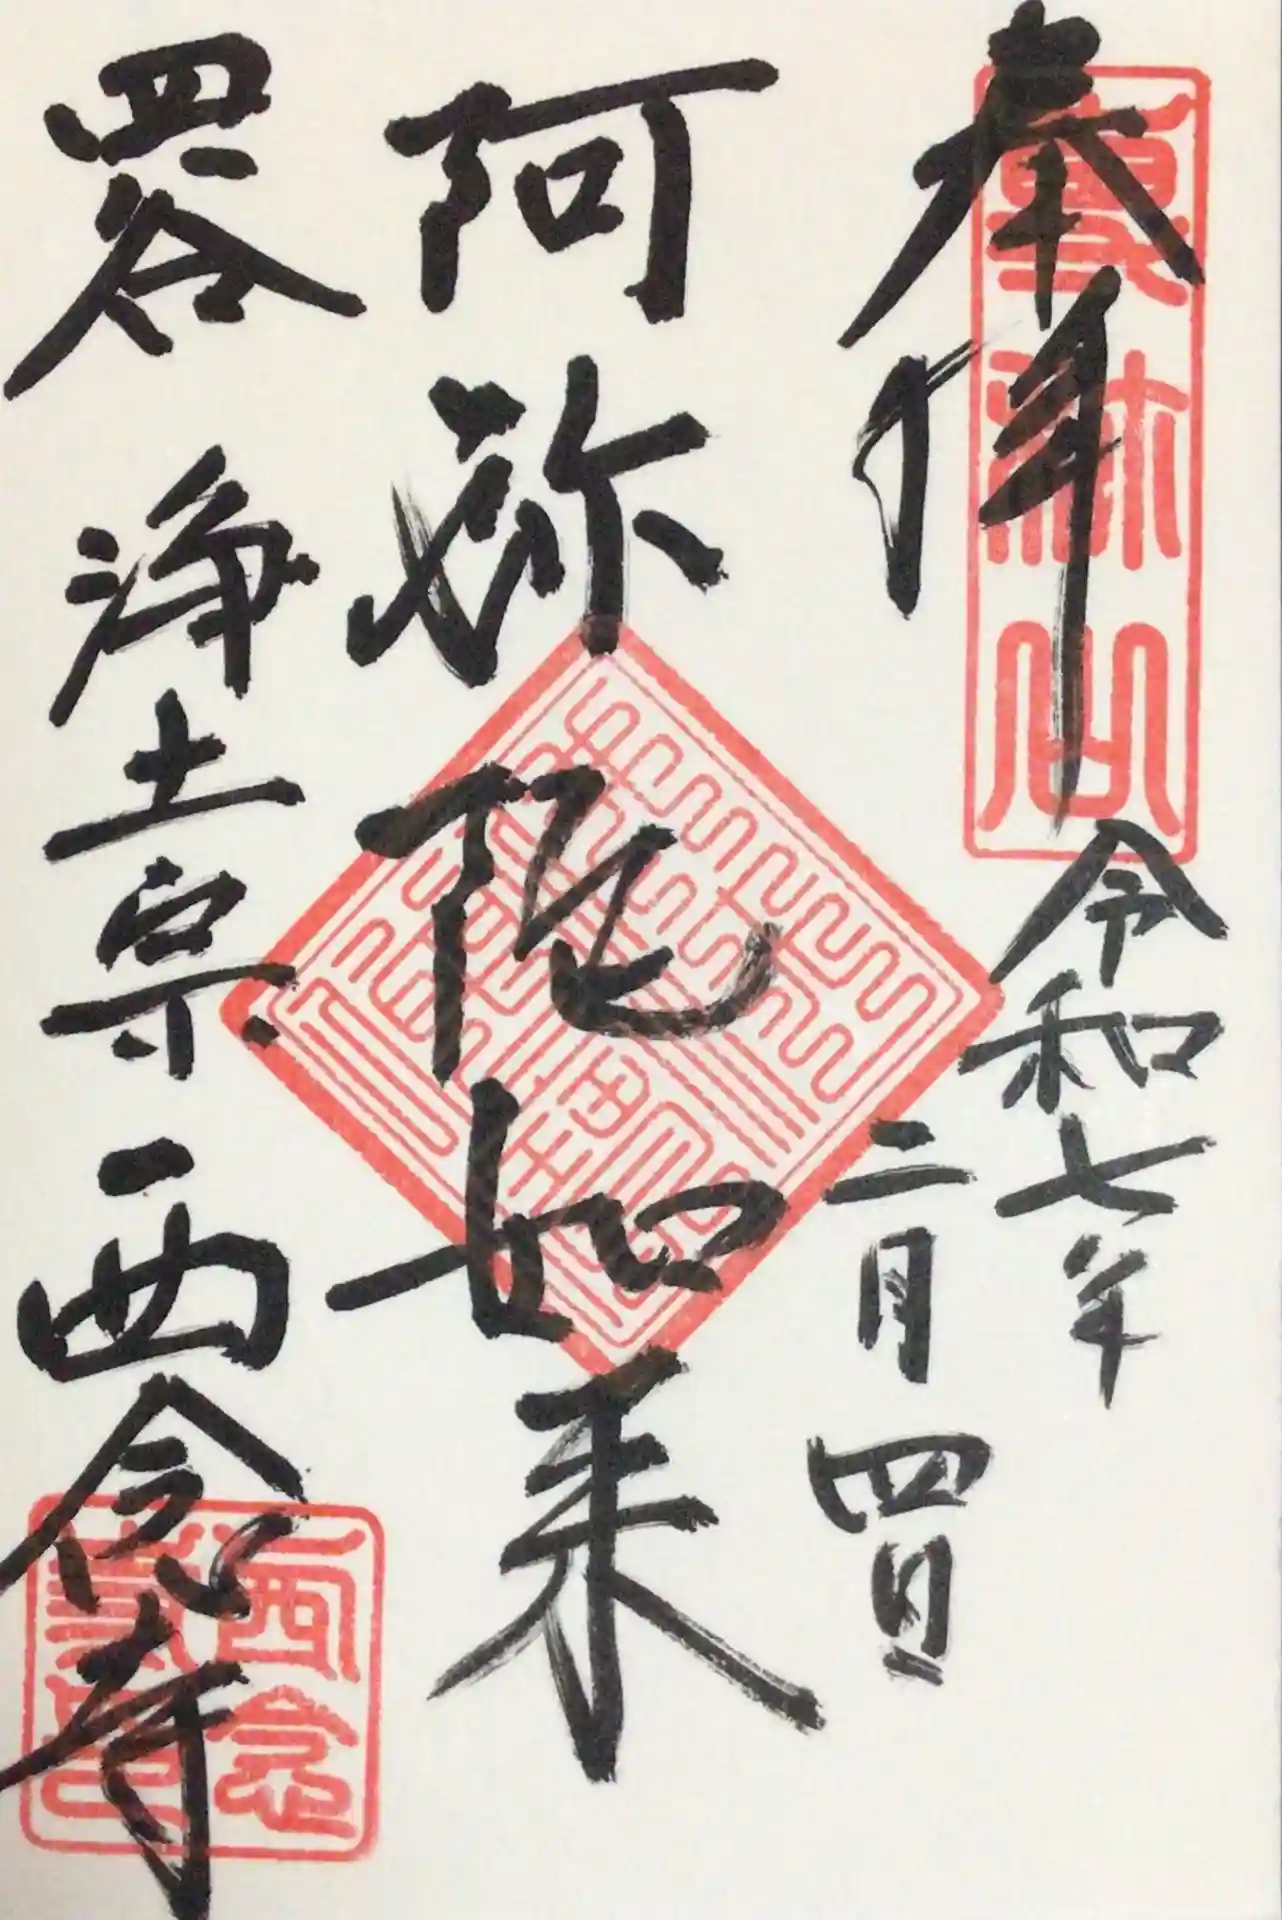 奉拝
專稱山
令和七年
二月四日
阿弥陀如来
四谷 浄土宗 西念寺
西念
寺印